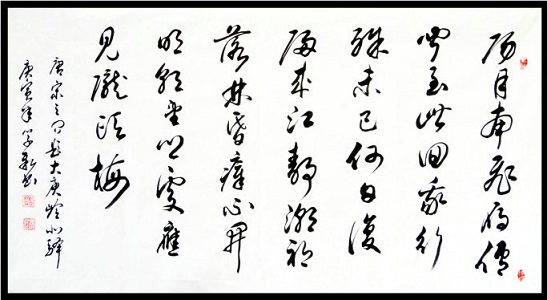 陽月南飛雁傳
聞至此回我行
殊未已何日復
歸來江靜潮初
落林昏瘴不開
明朝望鄉處應
見隴頭梅
唐宋之问題大庾嶺北驛
庚寅年学新书